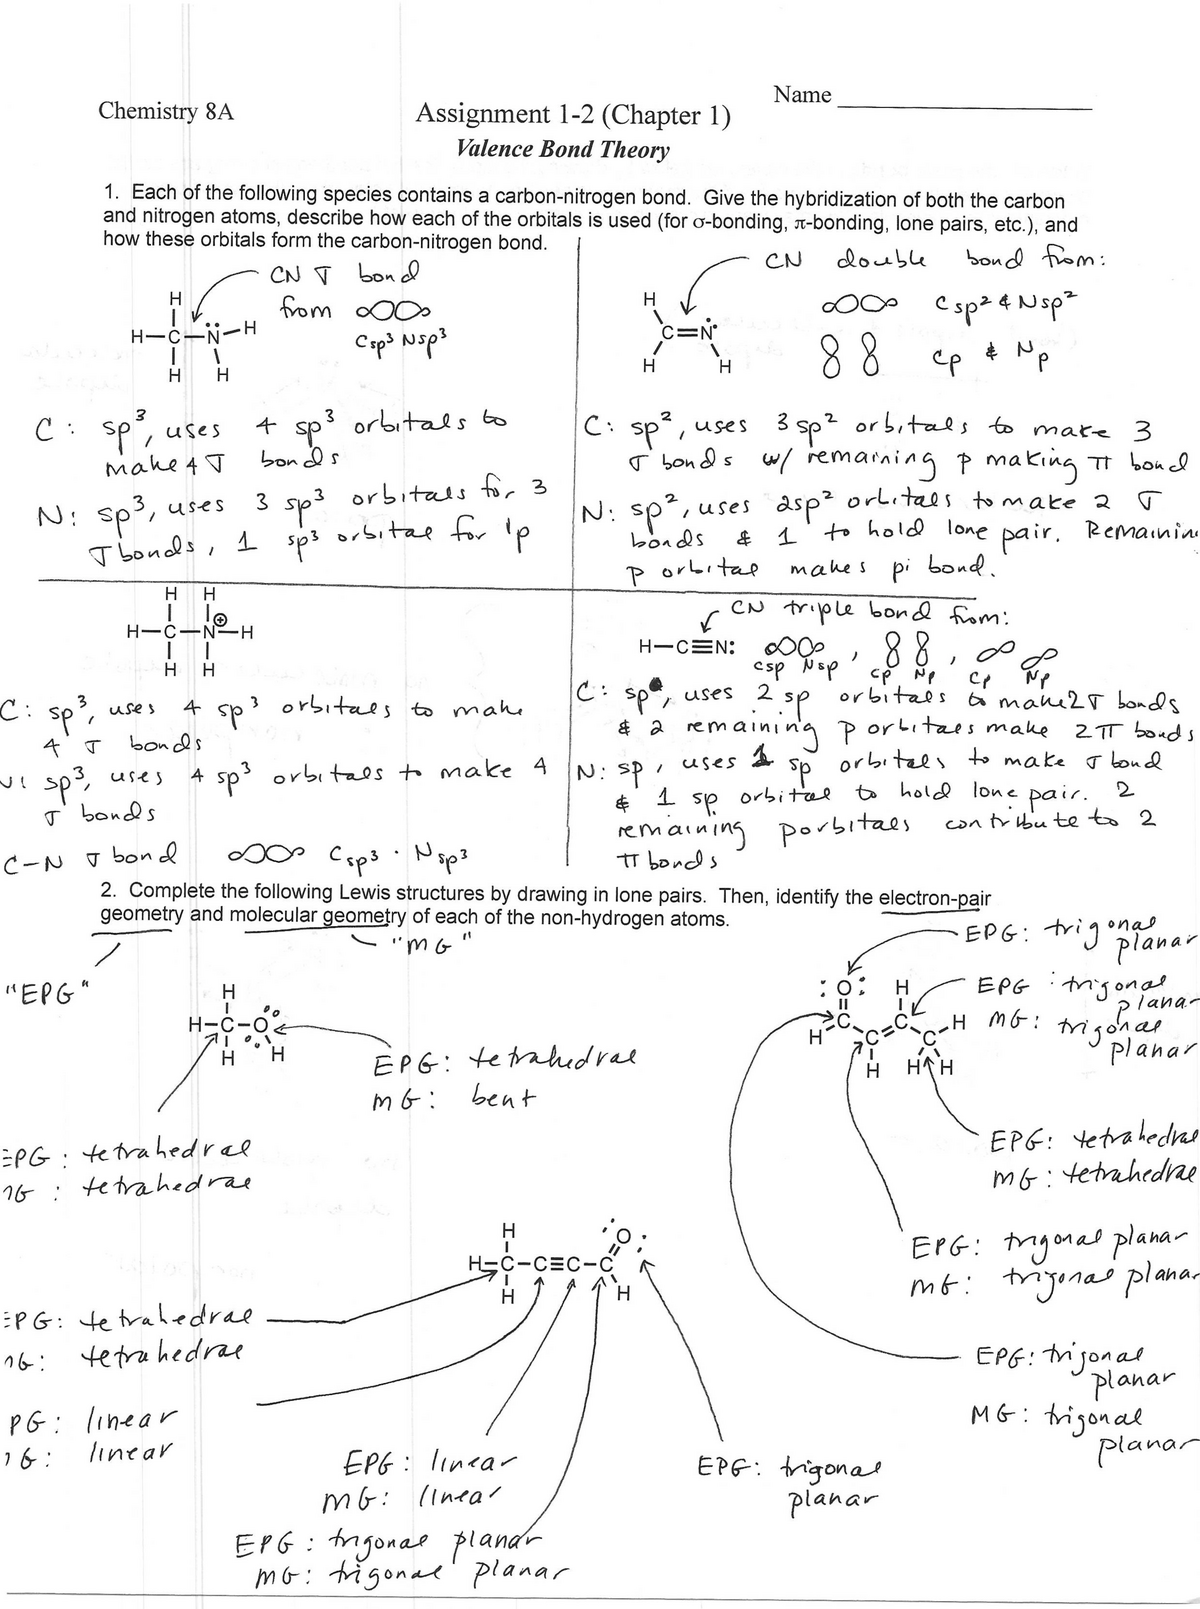 Chemistry 8A
Assignment 1-2 (Chapter 1)
Name
Valence Bond Theory
1. Each of the following species contains a carbon-nitrogen bond. Give the hybridization of both the carbon
and nitrogen atoms, describe how each of the orbitals is used (for σ-bonding, π-bonding, lone pairs, etc.), and
how these orbitals form the carbon-nitrogen bond.
CN σ bond
from
Csp³ Nsp³
H
H–C–N̈–H
H H
C: sp³, uses 4 sp³ orbitals to
make 4 σ bonds
N: sp³, uses 3 sp³ orbitals for 3
σ bonds, 1 sp³ orbital for lp
CN double bond from:
Csp² & Nsp²
Cp & Np
H
C=N
H H
C: sp², uses 3 sp² orbitals to make 3
σ bonds w/ remaining p making π bond
N: sp², uses 2sp² orbitals to make 2 σ
bonds & 1 to hold lone pair. Remaining
p orbital makes pi bond.
H H
H–C–N⊕–H
H H
C: sp³, uses 4 sp³ orbitals to make
4 σ bonds
N: sp³, uses 4 sp³ orbitals to make 4
σ bonds
C–N σ bond Csp³ · Nsp³
CN triple bond from:
H–C≡N: , ,
Csp Nsp Cp Np Cp Np
C: sp, uses 2 sp orbitals to make 2 σ bonds
& 2 remaining p orbitals make 2 π bonds
N: sp, uses 1 sp orbitals to make σ bond
& 1 sp orbital to hold lone pair. 2
remaining p orbitals contribute to 2
π bonds
2. Complete the following Lewis structures by drawing in lone pairs. Then, identify the electron-pair
geometry and molecular geometry of each of the non-hydrogen atoms.
"EPG"
"MG"
H
H–C–O
H H
EPG: tetrahedral
MG: bent
EPG: tetrahedral
MG: tetrahedral
EPG: trigonal
planar
:O: H
H C C C H
C
H H H
EPG: trigonal
planar
MG: trigonal
planar
EPG: tetrahedral
MG: tetrahedral
EPG: trigonal planar
MG: trigonal planar
EPG: trigonal
planar
MG: trigonal
planar
H
H–C–C≡C–C
O
H H
EPG: tetrahedral
MG: tetrahedral
PG: linear
G: linear
EPG: linear
MG: linear
EPG: trigonal planar
MG: trigonal planar
EPG: trigonal
planar